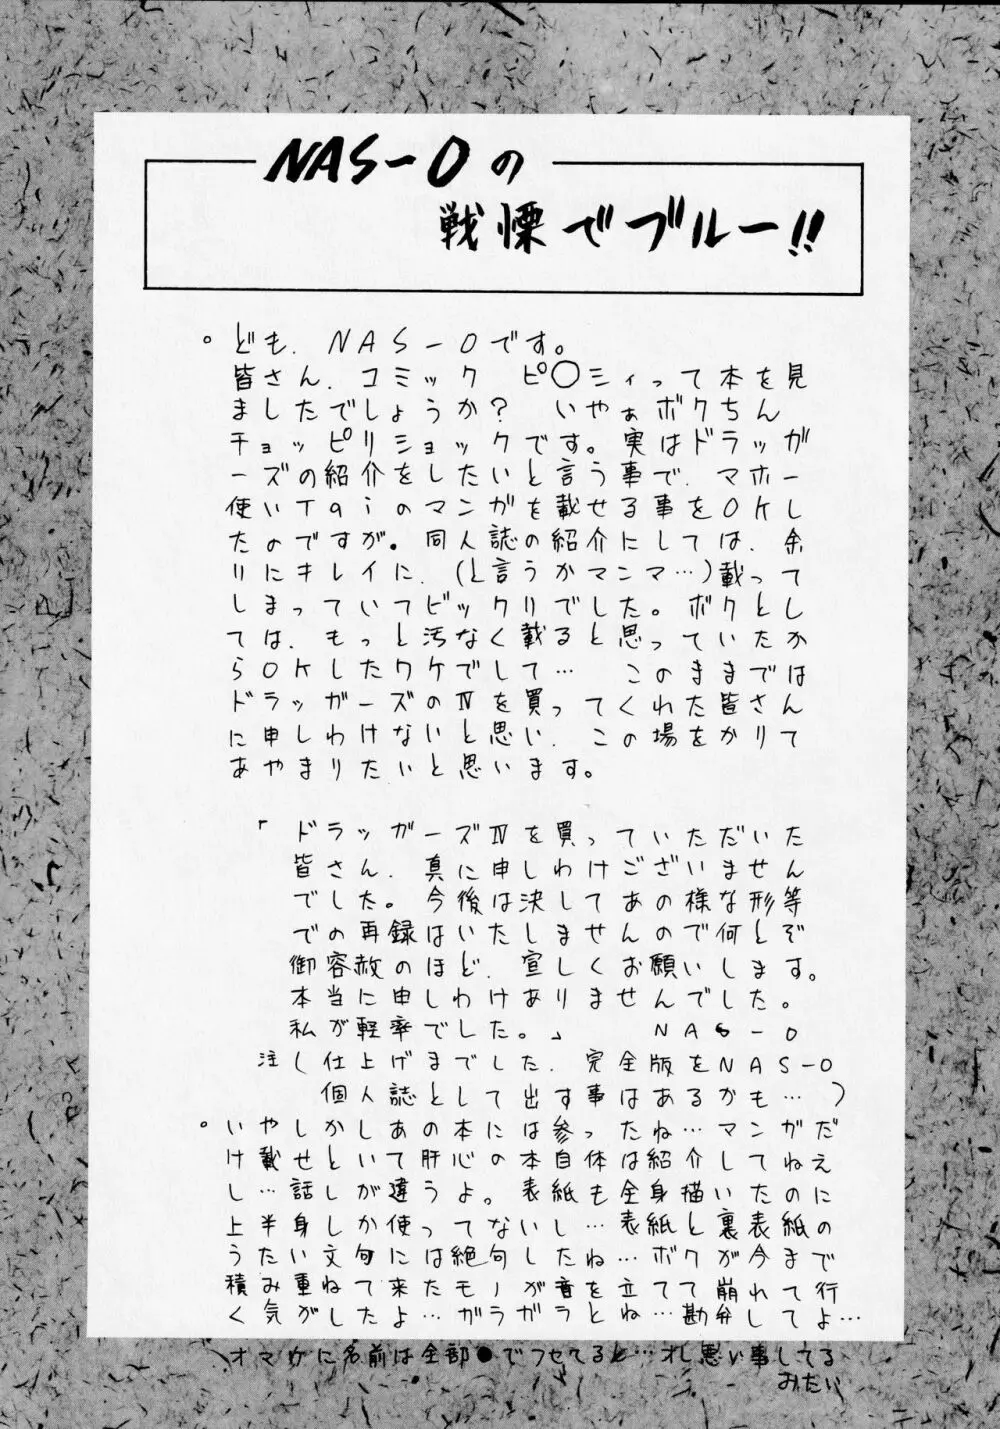 NAS-Oの
戦慄でブルー!!
。ども、NAS-Oです。
皆さん、コミック ピ◯シィって本を見
ましたでしょうか? いやぁボクちん
チョッピリショックです。実はドラッガ
ーズの紹介をしたいと言う事で、マホー
使いTaiのマンガを載せる事をOKし
たのですが。同人誌の紹介にしては、余
りにキレイに、(と言うかマンマ…)載って
しまっていてビックリでした。ボクとし
ては、もっと汚なく載ると思っていたか
らOKしたワケでして… このままでは
ドラッガーズのⅣを買ってくれた皆さん
に申しわけないと思い、この場をかりて
あやまりたいと思います。
「ドラッガーズⅣを買っていただいた
皆さん、真に申しわけございません
でした。今後は決してあの様な形等
での再録はいたしませんので何とぞ
御容赦のほど、宜しくお願いします。
本当に申しわけありませんでした。
私が軽率でした。」 NAS-O
注(仕上げまでした、完全版をNAS-O
個人誌として出す事はあるかも…)
。いやしかしあの本には参ったね…マンガだ
け載せといて肝心の本自体は紹介してねえ
し…話しが違うよ。表紙も全身描いたのに
上半身しか使ってないし…表紙と裏表紙の
うたい文句には絶句したね…ボクが今まで
積み重ねて来たモノが音を立てて崩れて行
く気がしたよ…ガラガラとね…勘弁してよ…
オマケに名前は全部●でフセてると…オレ悪い事してる
みたい